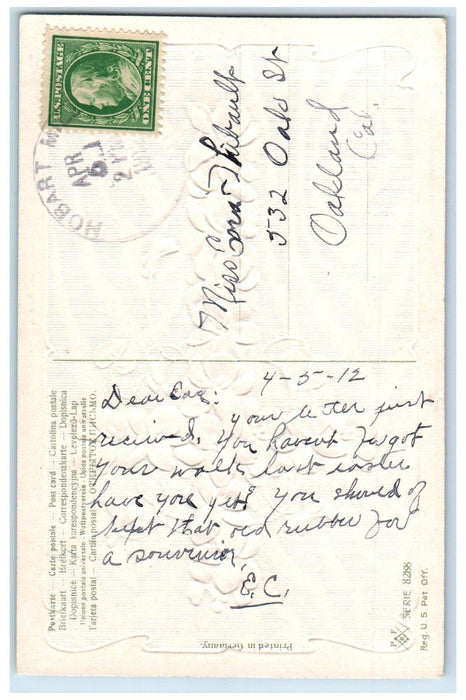 U.S. POSTAGE
ONE CENT
HOBART
APR
Miss Cora Thibault
532 Oak St
Oakland
Cal.
4-5-12
Dear
your letter just
received. You havent forgot
your walk last easter
have you yet? You should of
kept that old rubber for
a souvenior,
E.C.
Postkarte — Carte postale — Post card — Cartolina postale
Briefkaart — Brefkort — Correspondenzkarte — Dopisnica
Dopisnice — Karta korespondencyjna — Levelező-Lap
Union postale universelle — Weltpostverein — Unione postale universale
Tarjeta postal — ОТКРЫТОЕ ПИСЬМО.
Printed in Germany.
P F
SERIE 8288
Reg. U.S. Pat. Off.